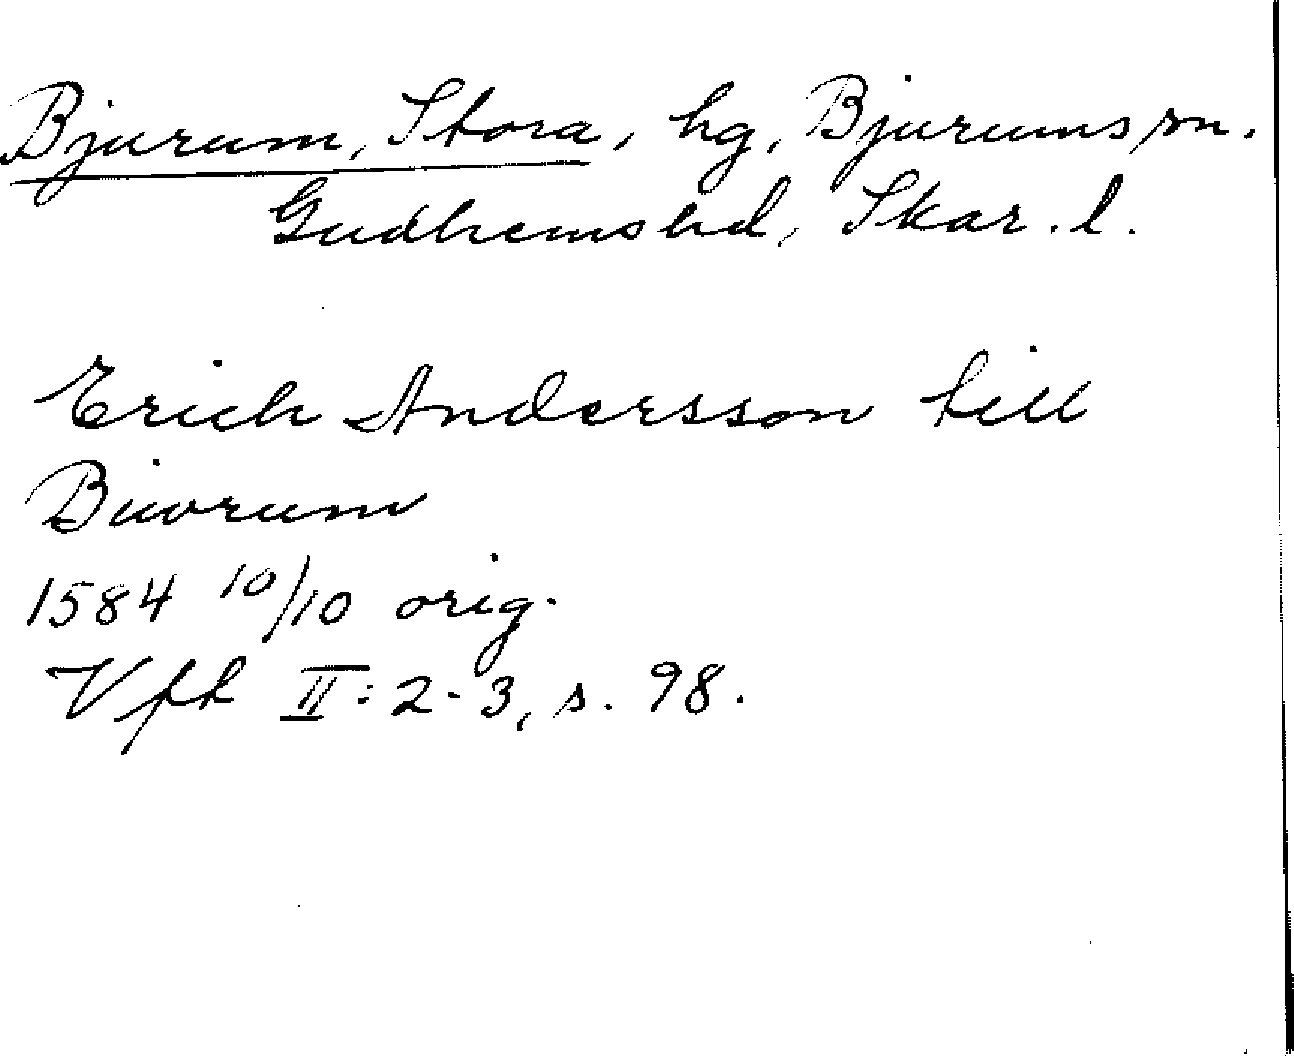 Bjurum, Stora, hg, Bjurums sn.
Gudhems hd, Skar. l.
Erich Andersson till
Biwrum
1584 10/10 orig.
Vfh II: 2-3, s. 98.